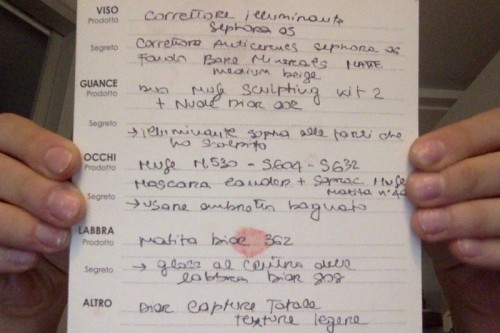 VISO
Prodotto
correttore illuminante
sephora 05
Segreto
correttore anticernes sephora 05
Fondo Bare Minerals MATTE
medium beige
GUANCE
Prodotto
Duo Mufe Sculpting kit 2
+ Nude Dior
Segreto
→ illuminante sopra alle parti che
ho scolpito
OCCHI
Prodotto
Mufe M.530 - S604 - S632
Mascara + Mufe
Matita n°
Segreto
→ usare ombretti bagnato
LABBRA
Prodotto
Matita Dior 362
Segreto
→ gloss al centro delle
labbra Dior
ALTRO
Dior Capture Totale
texture legere